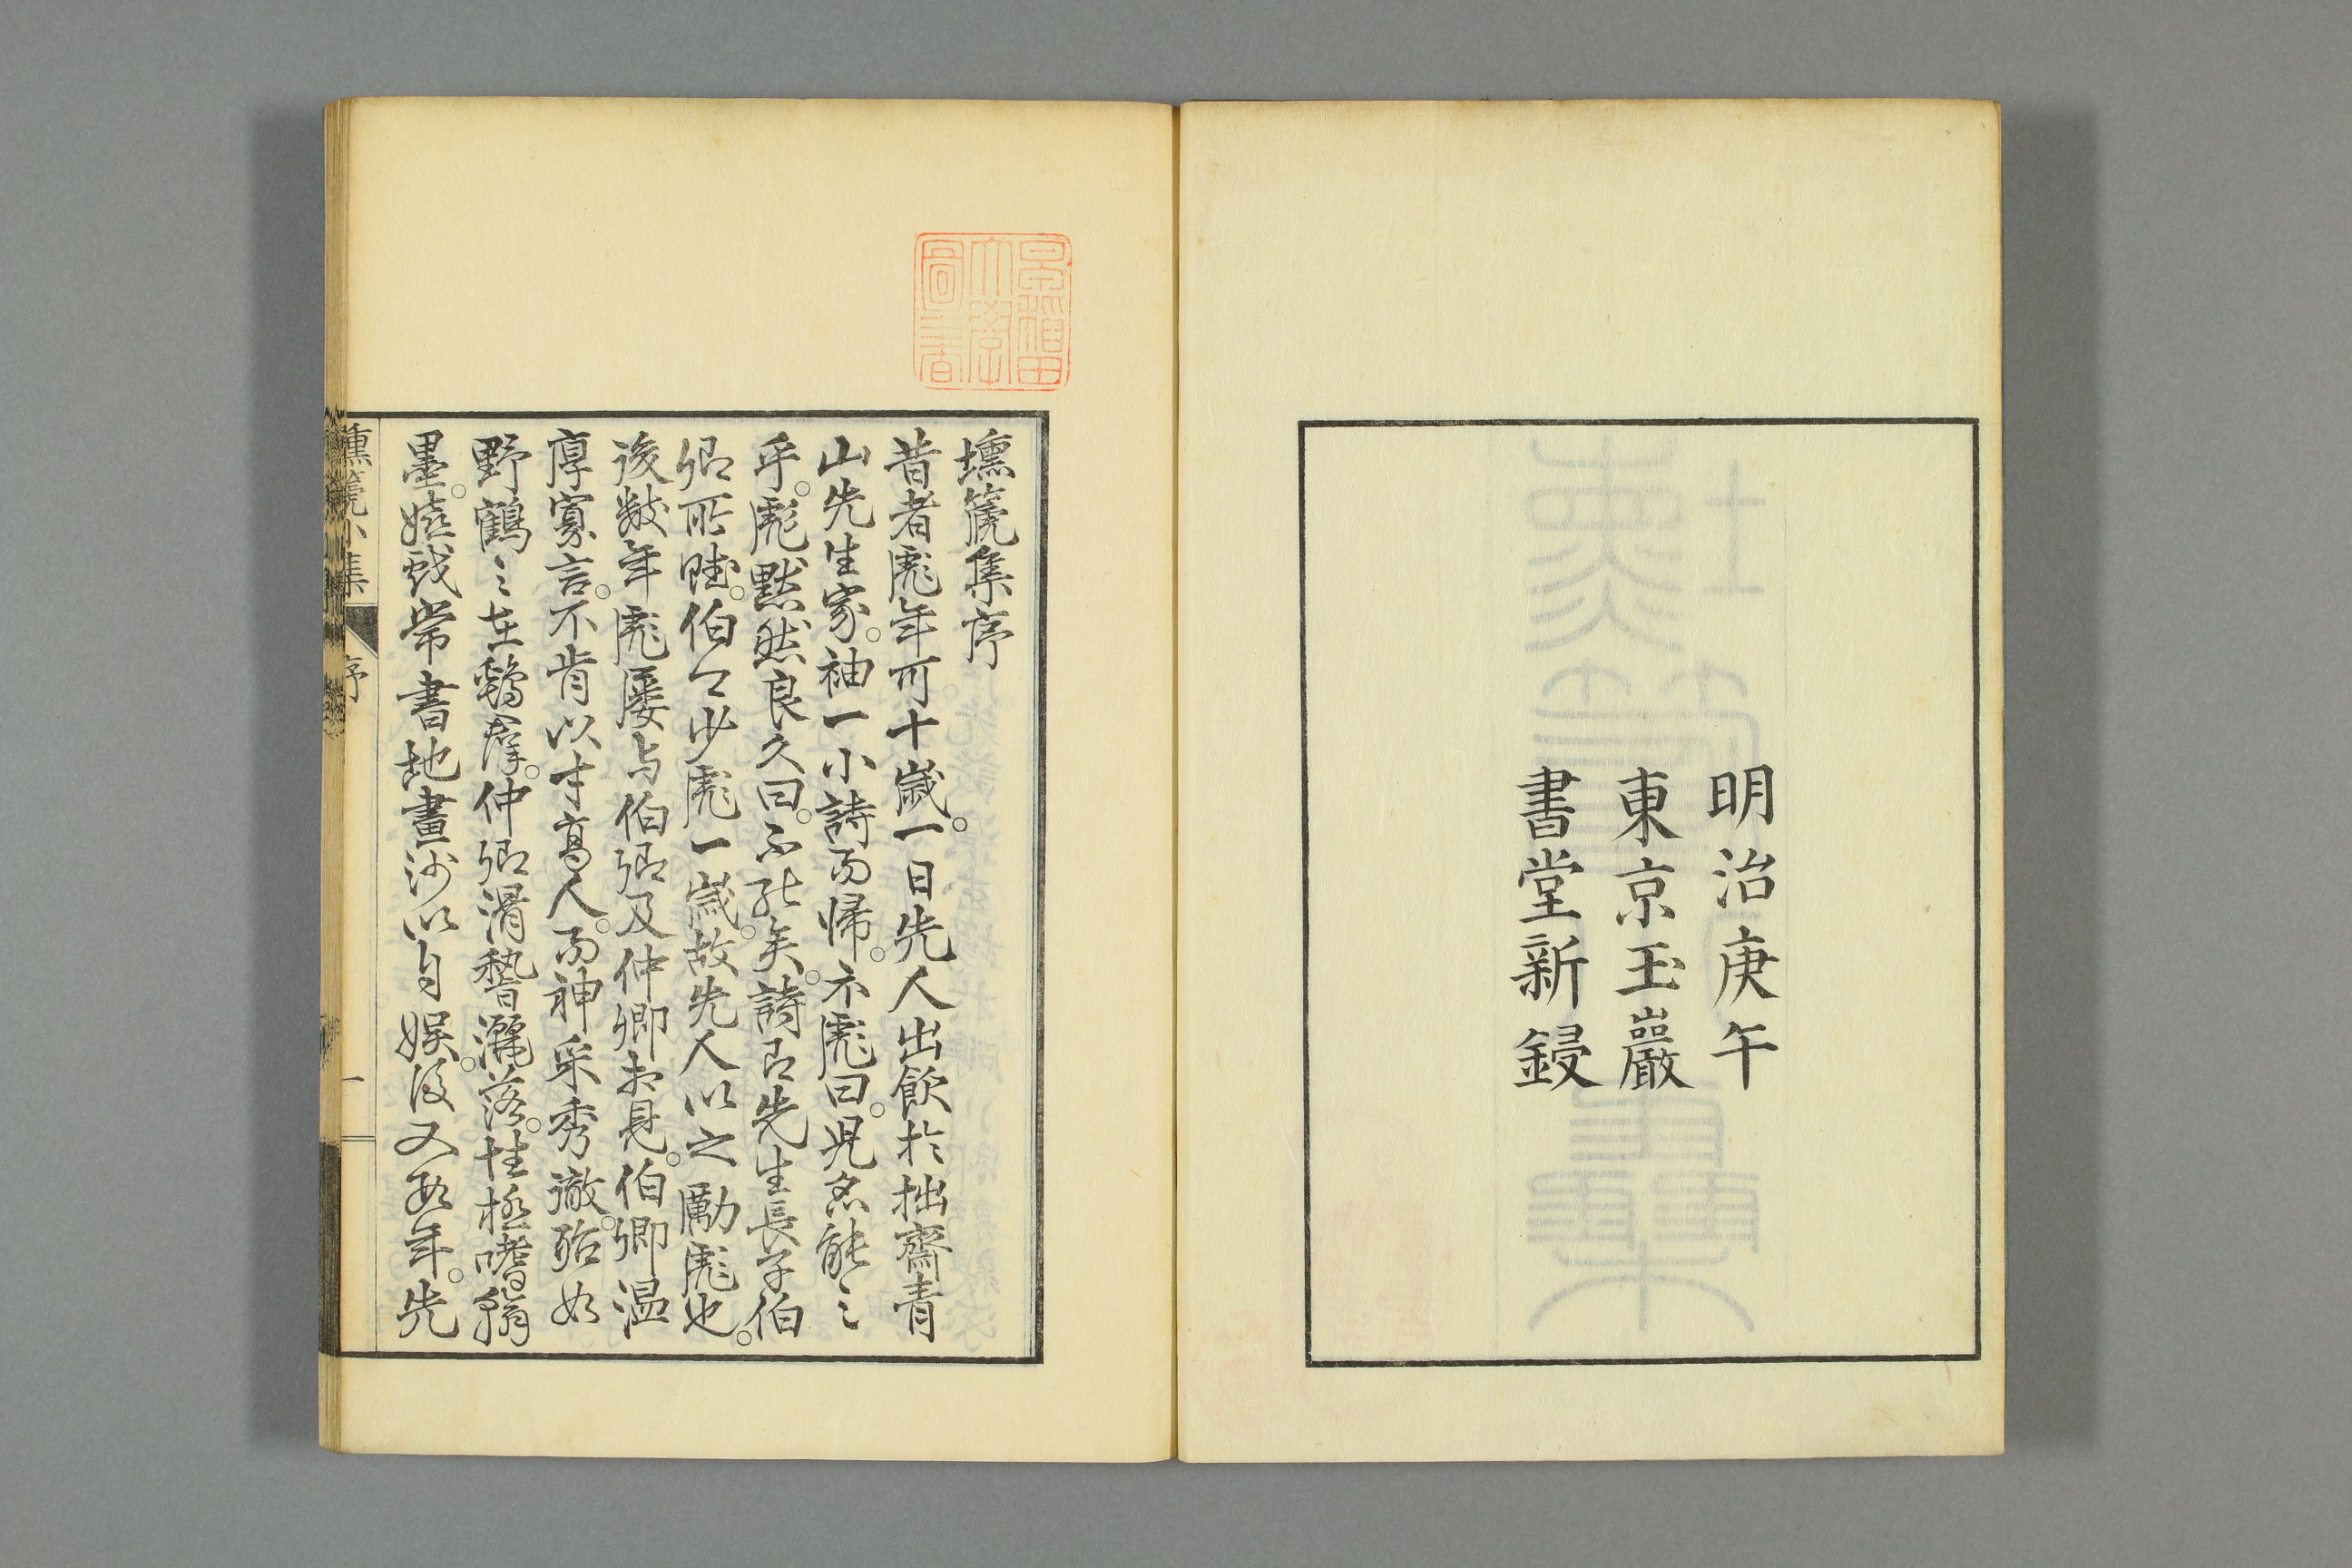 明治庚午
東京玉巖
書堂新鋟
早稲田
大學
圖書
壎箎集序
昔者彪年可十歳。一日先人出飲於拙齋青
山先生家。袖一小詩而帰。示彪曰。児名能〻
乎。彪黙然良久曰。不能矣。詩即先生長子伯
卿所賦。伯卿少彪一歳。故先人以之勵彪也。
後数年彪屡与伯卿及仲卿相見。伯卿温
厚寡言。不肯以才高人。而神采秀徹。殆如
野鶴〻在鷄群。仲卿滑稽灑落。性極嗜翰
墨。嬉戯常書地畫沙以自娯。後又数年。先
壎箎小集
序
一